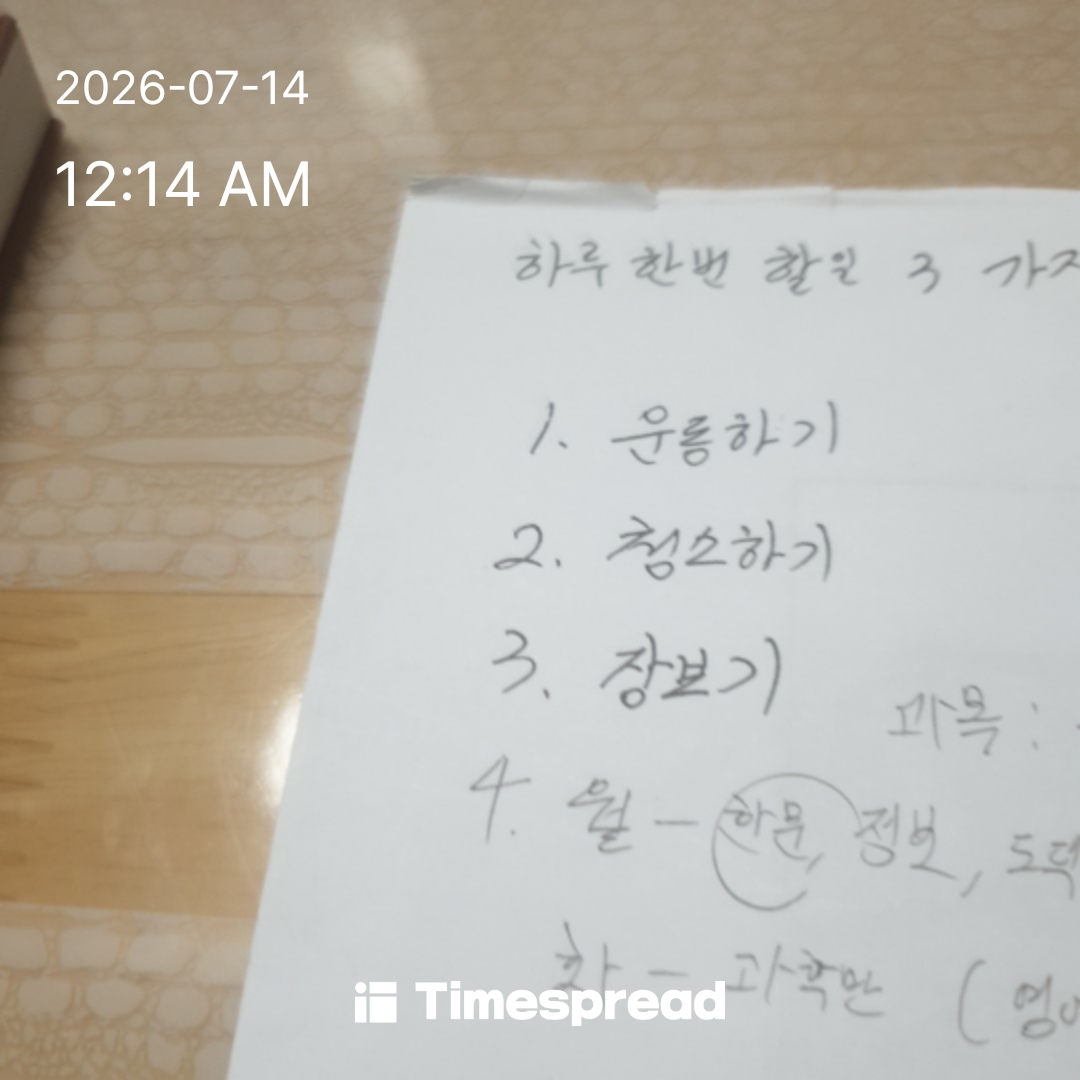 2026-07-14
12:14 AM
하루 한번 할일 3 가지
1. 운동하기
2. 청소하기
3. 장보기
과목 :
4. 월 - 한문, 정보, 도덕
화 - 과학만 ( 영어
Timespread